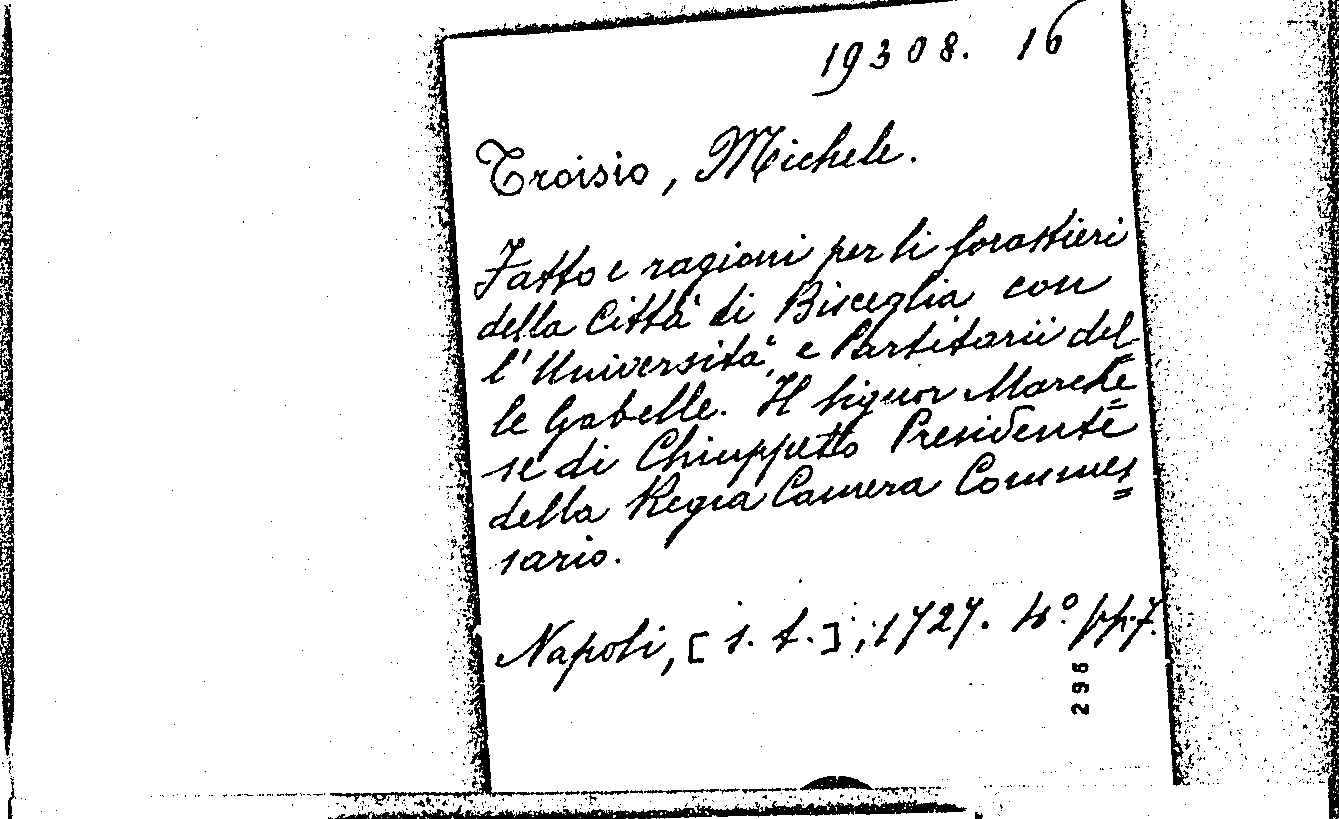 19308. 16
Troisio, Michele.
Fatto e ragioni per li forastieri
della Città di Bisceglia con
l'Università, e Partitarii del
le Gabelle. Il signor Marche=
se di Chiuppetto Presidente
della Regia Camera Commes=
sario.
Napoli, [s. t.], 1727. 4º pp. 7.
296